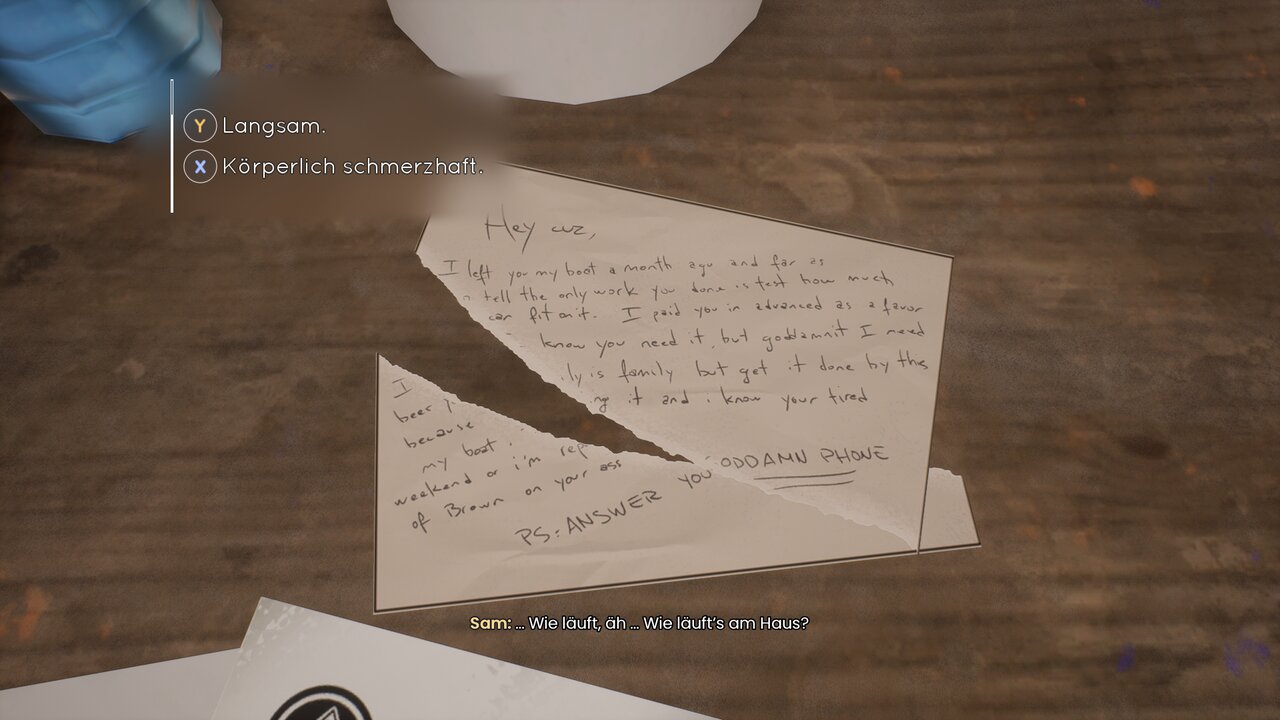 Y Langsam.
X Körperlich schmerzhaft.
Hey cuz,
I left you my boat a month ago and far as
tell the only work you done is test how much
can fit on it. I paid you in advanced as a favor
know you need it, but goddamnit I need
ly is family but get it done by this
ng it and i know your tired
ODDAMN PHONE
I
beer
because
my boat
weekend or i'm rep
of Brown on your ass
PS: ANSWER YOU
Sam: ... Wie läuft, äh ... Wie läuft's am Haus?